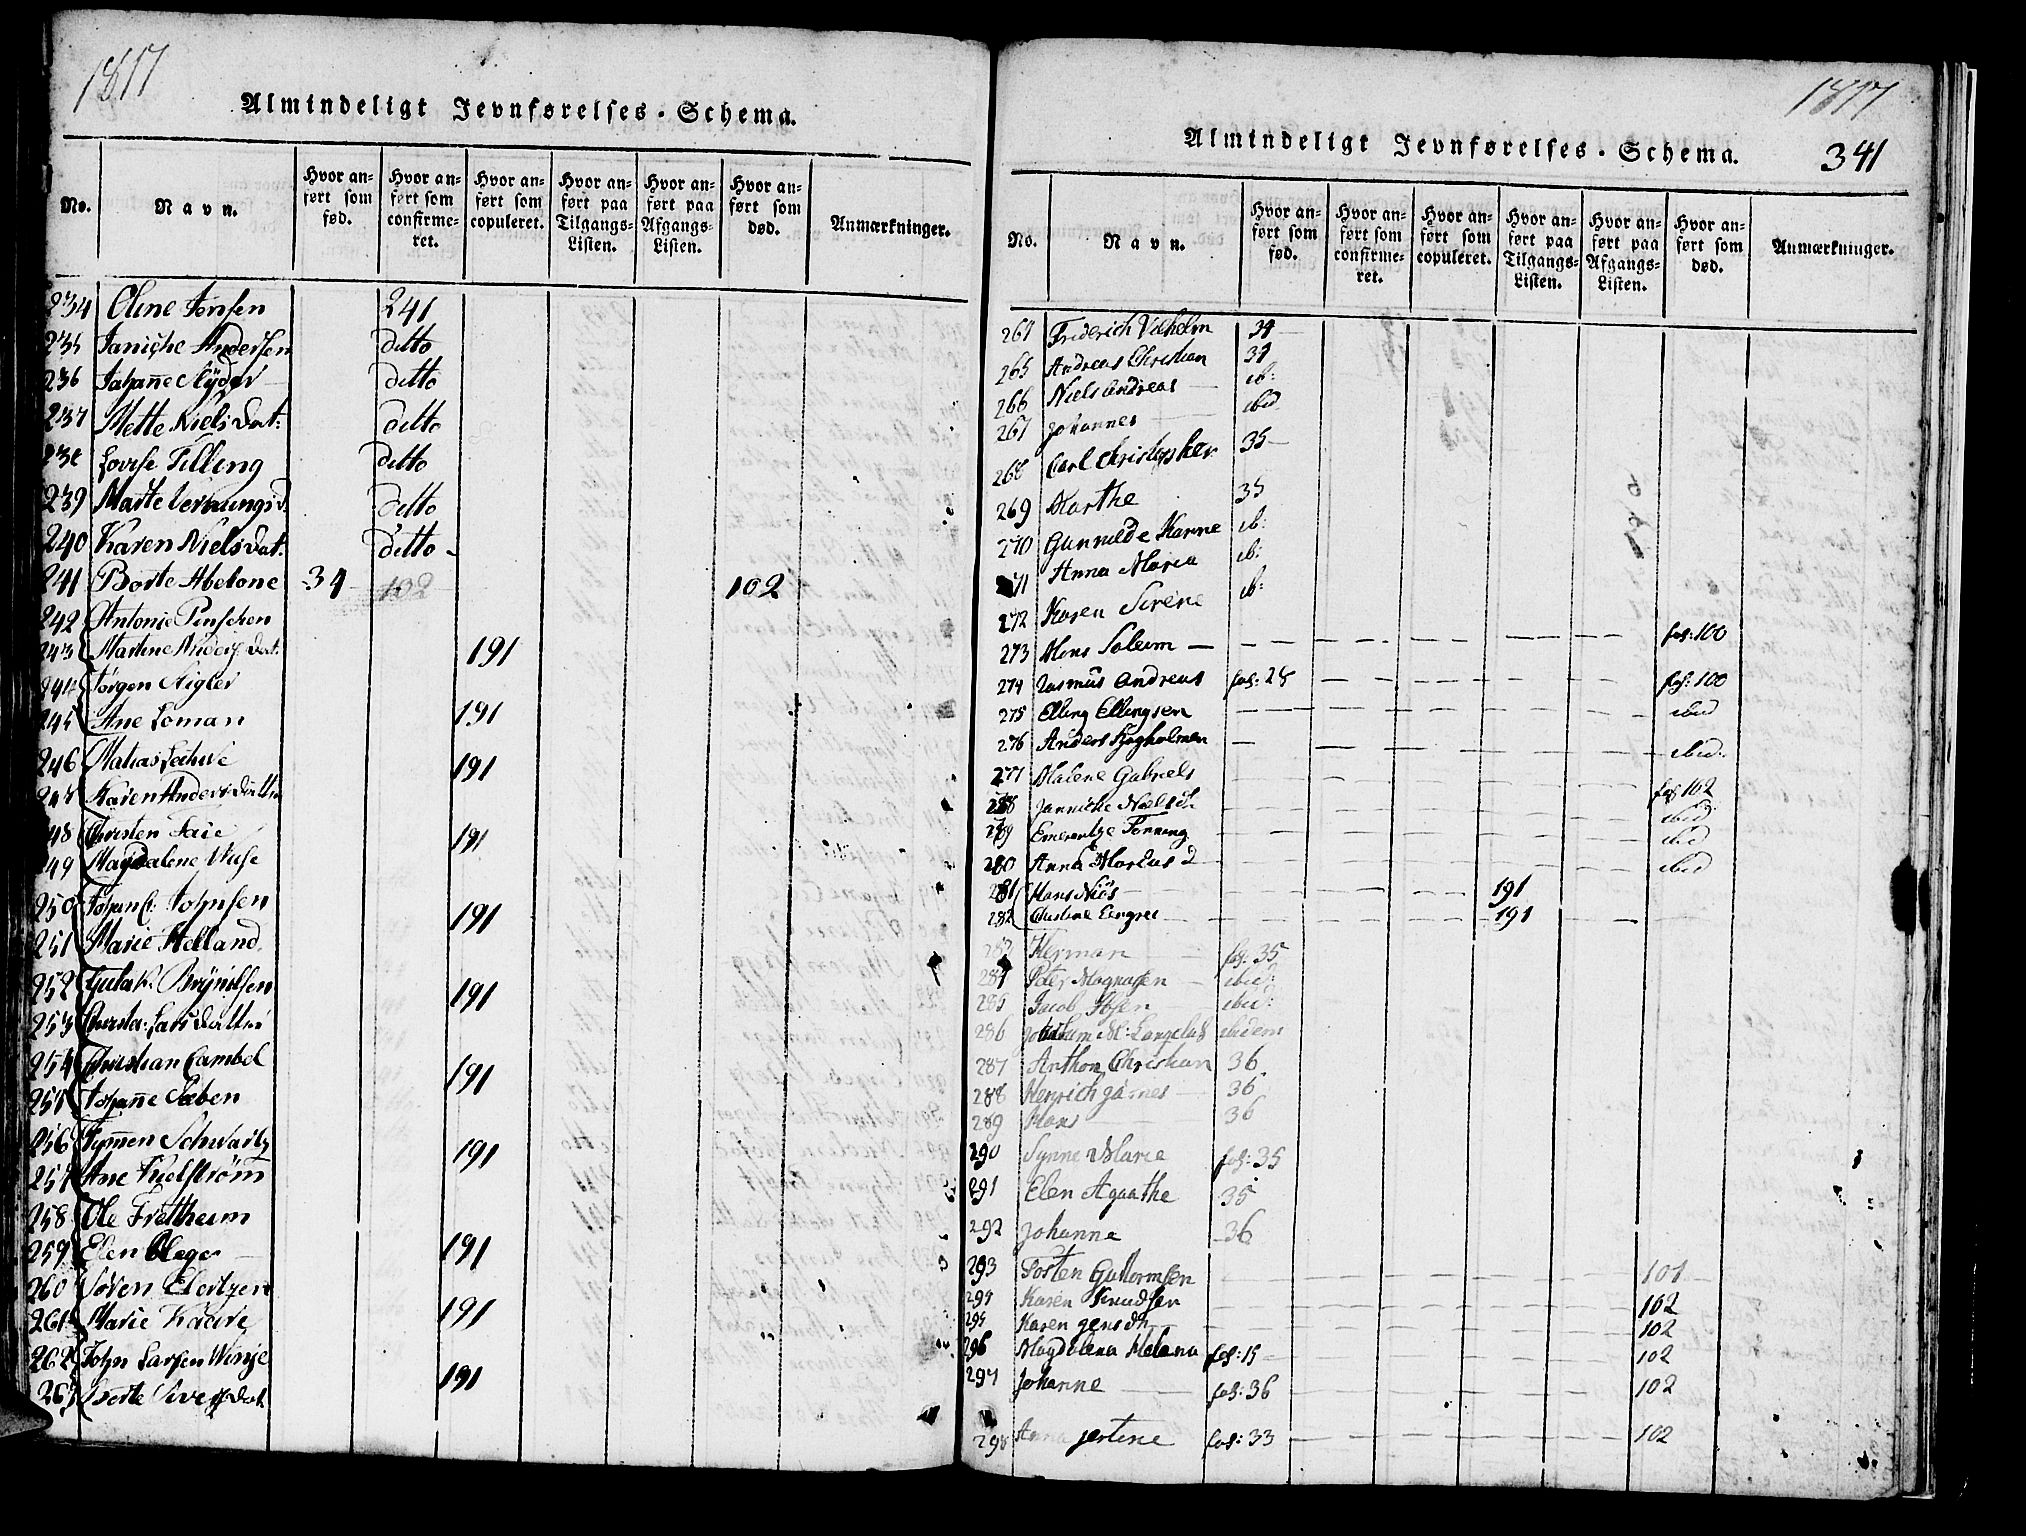 1817
Almindeligt Jevnførelses-Schema.
No. Navn. Hvor anført som fød. Hvor anført som confirmeret. Hvor anført som copuleret. Hvor anført paa Tilgangs-Listen. Hvor anført paa Afgangs-Listen. Hvor anført som død. Anmærkninger.
234 Oline Jonsen 241
235 Janiche Andersen ditto
236 Johañe ditto
237 Mette Niels Dat: ditto
238 Lovise Tilling ditto
239 Marte ditto
240 Karen Niels Dat: ditto
241 Borte Abelone 34 102 102
242 Antonie
243 Martine Anders Dat: 191
244 Jørgen Sigler
245 Ane Loman 191
246 Matias 191
247 Karen Anders Datter
248 Christen 191
249 Magdalene Wiese
250 Johan C: Johnsen 191
251 Marie Helland
252 191
253 Lars Datter
254 Christian Cambel 191
255 Johañe Sæben
256 Schwartz 191
257 Ane Kielstrøm
258 Ole Frettheim
259 Elen 191
260 Søren Elertzen
261 Marie 191
262 John Larsen Winje
263 191
1817
341
Almindeligt Jevnførelses-Schema.
No. Navn. Hvor anført som fød. Hvor anført som confirmeret. Hvor anført som copuleret. Hvor anført paa Tilgangs-Listen. Hvor anført paa Afgangs-Listen. Hvor anført som død. Anmærkninger.
264 Friderich Vilhelm 34
265 Andreas Christian 34
266 Niels Andreas ib:
267 Johannes ibid
268 Carl Christopher 35
269 Marthe 35
270 Gunnilde Hanne ib:
271 Anna Maria ib:
272 Karen Serene ib:
273 Mons Soleim fol: 100
274 Rasmus Andreas fol: 28 fol: 100
275 Elling Ellingsen ibid
276 Anders ibid:
277 Malene Gabriels fol 102
278 Jannicke Niels D. ibid
279 Emerentze Fonning ibid
280 Anna Marcus D ibid
281 Hans Niis 191
282 191
283 Herman fol: 35
284 Peter Magnussen ibid:
285 Jacob ibid:
286 ibidem
287 Anthon Christian 36
288 Henrich James 36
289 Hans 36
290 Synne Marie fol: 35
291 Elen Agathe 35
292 Johanne 36
293 Torsten Guttormsen 101
294 Karen Knudsen 102
295 Karen Jens Dtr 102
296 Magdalena Helena fol: 15 102
297 Johanne fol: 36 102
298 Anna Jertine fol: 33 102